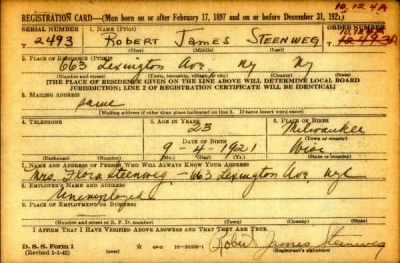 10,124A
REGISTRATION CARD—(Men born on or after February 17, 1897 and on or before December 31, 1921)
SERIAL NUMBER 1. NAME (Print) ORDER NUMBER
2493 ROBERT JAMES STEENWEG
2. PLACE OF RESIDENCE (Print)
663 Lexington Ave. NY NY
(Number and street) (Town, township, village, or city) (County) (State)
[THE PLACE OF RESIDENCE GIVEN ON THE LINE ABOVE WILL DETERMINE LOCAL BOARD
JURISDICTION; LINE 2 OF REGISTRATION CERTIFICATE WILL BE IDENTICAL]
3. MAILING ADDRESS
same
[Mailing address if other than place indicated on line 2. If same insert word same]
4. TELEPHONE 5. AGE IN YEARS 6. PLACE OF BIRTH
23 Milwaukee
DATE OF BIRTH (Town or county)
9-4-1921 Wisc
(Exchange) (Number) (Mo.) (Day) (Yr.) (State or country)
7. NAME AND ADDRESS OF PERSON WHO WILL ALWAYS KNOW YOUR ADDRESS
Mrs. Flora Steenweg - 663 Lexington Ave NYC
8. EMPLOYER'S NAME AND ADDRESS
Unemployed
9. PLACE OF EMPLOYMENT OR BUSINESS
(Number and street or R. F. D. number) (Town) (County) (State)
I AFFIRM THAT I HAVE VERIFIED ABOVE ANSWERS AND THAT THEY ARE TRUE.
D. S. S. Form 1
(Revised 1-1-42) Robert James Steenweg
(Registrant's signature)